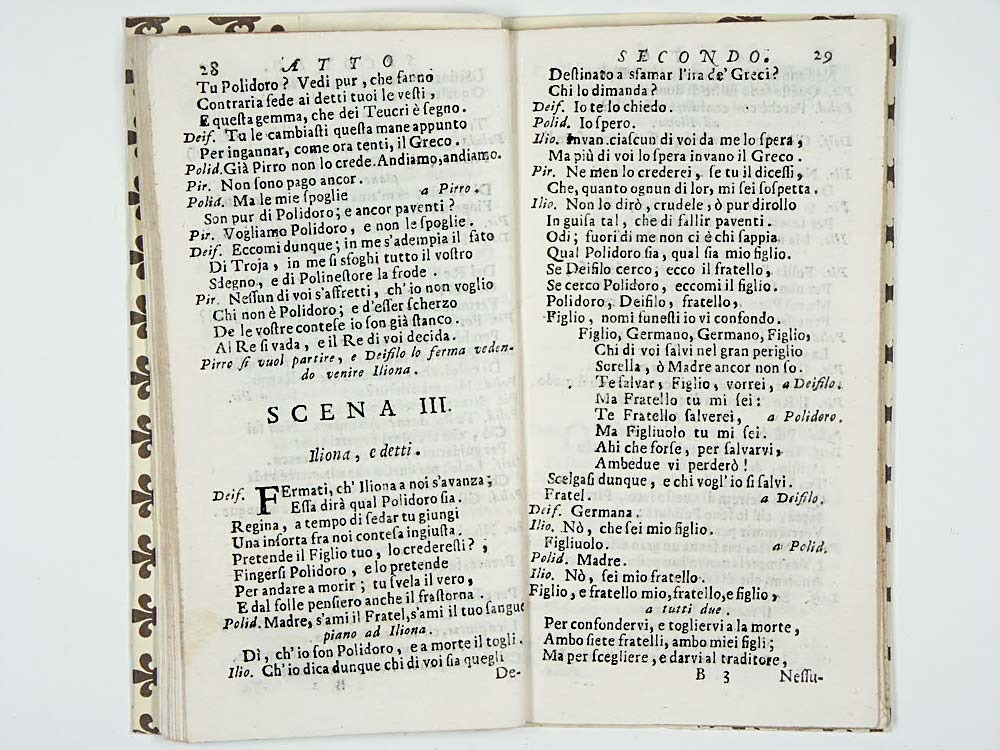 28 ATTO
Tu Polidoro? Vedi pur, che fanno
Contraria fede ai detti tuoi le veſti,
E queſta gemma, che dei Teucri è ſegno.
Deif. Tu le cambiaſti queſta mane appunto
Per ingannar, come ora tenti, il Greco.
Polid. Già Pirro non lo crede. Andiamo, andiamo.
Pir. Non ſono pago ancor.
Polid. Ma le mie ſpoglie a Pirro.
Son pur di Polidoro; e ancor paventi?
Pir. Vogliamo Polidoro, e non le ſpoglie.
Deif. Eccomi dunque; in me s'adempia il fato
Di Troja, in me ſi sfoghi tutto il voſtro
Sdegno, e di Polineſtore la frode.
Pir. Neſſun di voi s'affretti, ch'io non voglio
Chi non è Polidoro; e d'eſſer ſcherzo
De le voſtre conteſe io ſon già ſtanco.
Al Re ſi vada, e il Re di voi decida.
Pirro ſi vuol partire, e Deifilo lo ferma veden-
do venire Iliona.
SCENA III.
Iliona, e detti.
Deif. FErmati, ch'Iliona a noi s'avanza;
Eſſa dirà qual Polidoro ſia.
Regina, a tempo di ſedar tu giungi
Una inſorta fra noi conteſa ingiuſta.
Pretende il Figlio tuo, lo crederеſti?,
Fingerſi Polidoro, e lo pretende
Per andare a morir; tu ſvela il vero,
E dal folle penſiero anche il fraſtorna.
Polid. Madre, s'ami il Fratel, s'ami il tuo ſangue
piano ad Iliona.
Dì, ch'io ſon Polidoro, e a morte il togli.
Ilio. Ch'io dica dunque chi di voi ſia quegli
De-
SECONDO. 29
Deſtinato a sfamar l'ira de' Greci?
Chi lo dimanda?
Deif. Io te lo chiedo.
Polid. Io ſpero.
Ilio. Invan ciaſcun di voi da me lo ſpera,
Ma più di voi lo ſpera invano il Greco.
Pir. Ne men lo crederei, ſe tu il diceſſi,
Che, quanto ognun di lor, mi ſei ſoſpetta.
Ilio. Non lo dirò, crudele, ò pur dirollo
In guiſa tal, che di fallir paventi.
Odi; fuori di me non ci è chi ſappia
Qual Polidoro ſia, qual ſia mio figlio.
Se Deifilo cerco, ecco il fratello,
Se cerco Polidoro, eccomi il figlio.
Polidoro, Deifilo, fratello,
Figlio, nomi funeſti io vi confondo.
Figlio, Germano, Germano, Figlio,
Chi di voi ſalvi nel gran periglio
Sorella, ò Madre ancor non ſo.
Te ſalvar, Figlio, vorrei, a Deifilo.
Ma Fratello tu mi ſei:
Te Fratello ſalverei, a Polidoro.
Ma Figliuolo tu mi ſei.
Ahi che forſe, per ſalvarvi,
Ambedue vi perderò!
Scelgaſi dunque, e chi vogl'io ſi ſalvi.
Fratel. a Deifilo.
Deif. Germana.
Ilio. Nò, che ſei mio figlio.
Figliuolo. a Polid.
Polid. Madre.
Ilio. Nò, ſei mio fratello.
Figlio, e fratello mio, fratello, e figlio,
a tutti due.
Per confondervi, e togliervi a la morte,
Ambo ſiete fratelli, ambo miei figli;
Ma per ſcegliere, e darvi al traditore,
B 3 Neſſu-